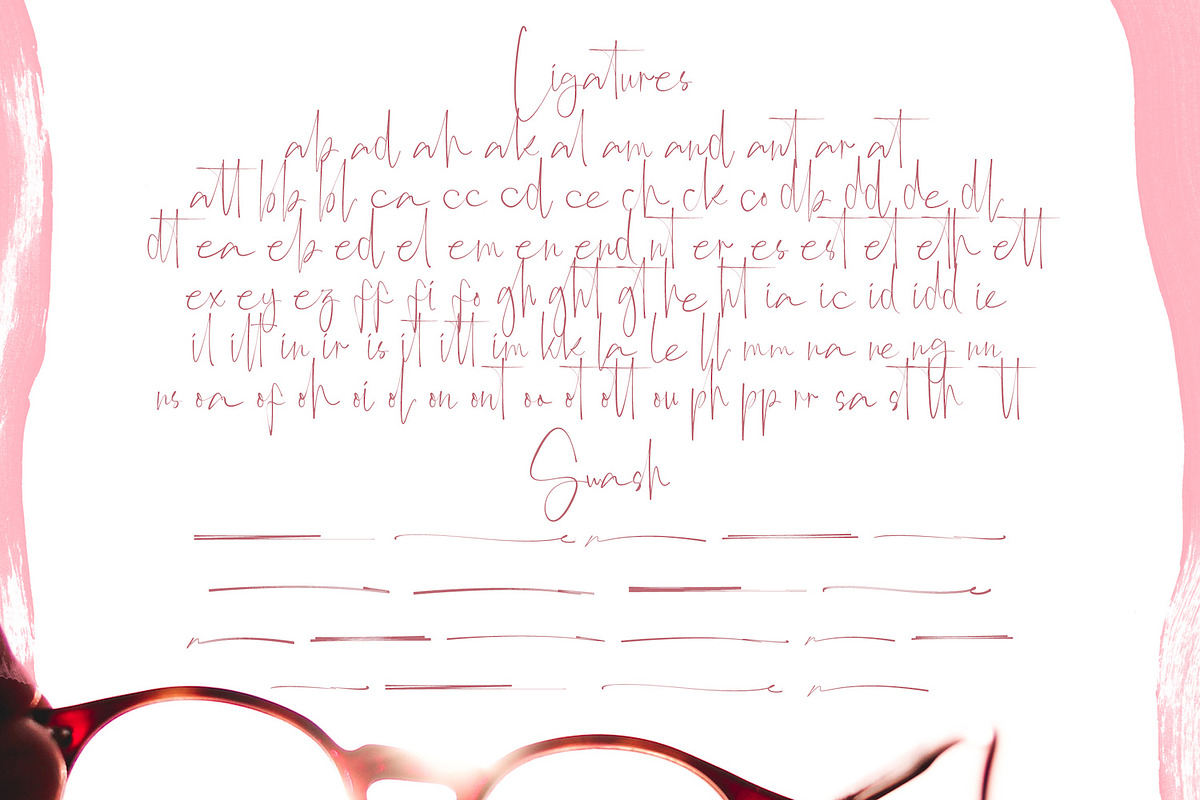 Ligatures
ab ad ah ak al am and ant ar at
att bb bl ca cc cd ce ch ck co db dd de dl
dt ea eb ed el em en end nt er es est et eth ett
ex ey ez ff fi fo gh ght gt he ht ia ic id idd ie
il ilt in ir is it itt im kk la le ll mm na ne ng nn
ns oa of oh oi ol on ont oo ot ott ou ph pp rr sa st th tt
Swash